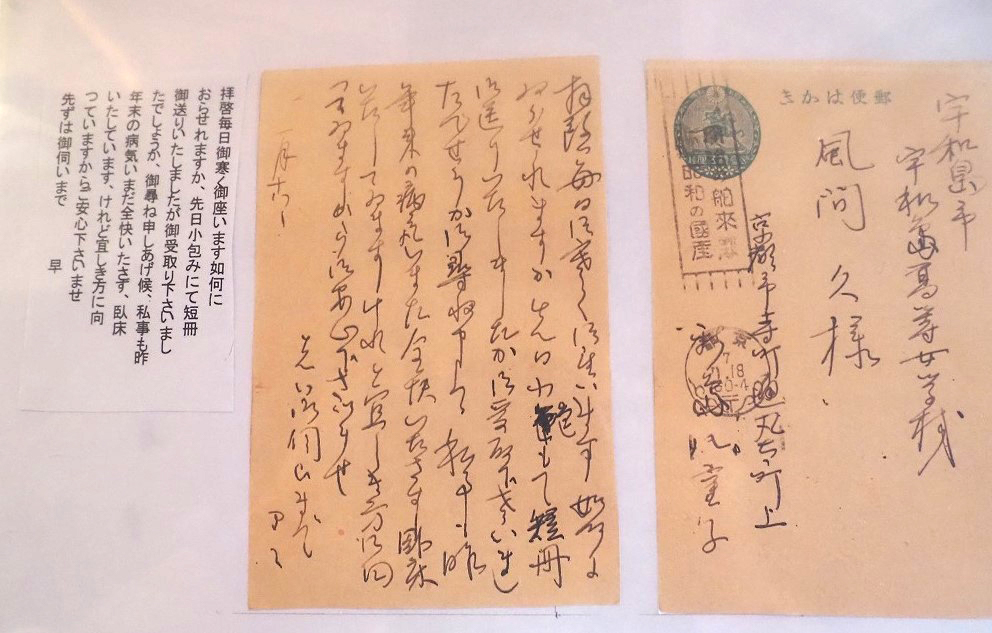 宇和島市
宇和島高等女学校
風間久様
郵便はかき
舶来
昭和の國産
京都市寺町通丸太町上
7.1.18
拝啓毎日御寒く御座います如何に
ぬらせれますか先日小包もて短冊
御送りいたしましたか御受取下さいまし
たでせうか御尋ね申上候 私事も昨
年来の病気いまた全快いたさす臥床
いたして居ますけれと宜しき方に向
つて居ますから御安心下さいませ
先は御伺いまで
一月十八日
拝啓毎日御寒く御座います如何に
おらせれますか、先日小包みにて短冊
御送りいたしましたが御受取り下さいまし
たでしょうか、御尋ね申しあげ候、私事も昨
年末の病気いまだ全快いたさず、臥床
いたしています、けれど宜しき方に向
つていますからご安心下さいませ
先ずは御伺いまで
早